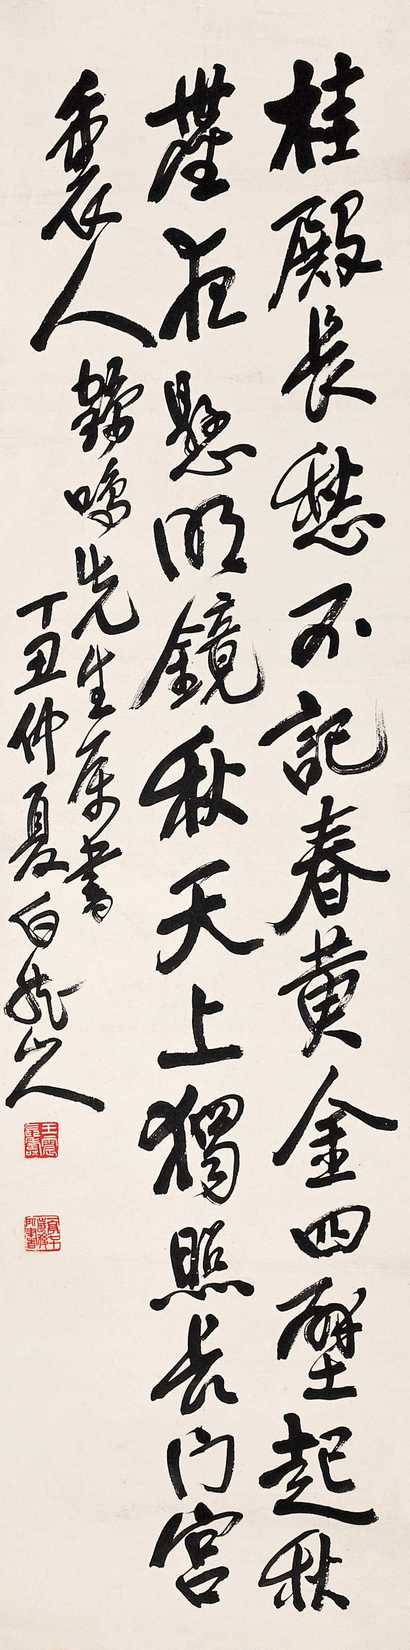 桂殿長愁不記春黃金四壁起秋
塵夜懸明鏡秋天上獨照長門宮
裏人
鶴鳴先生屬書
丁丑仲夏白龍山人
王震